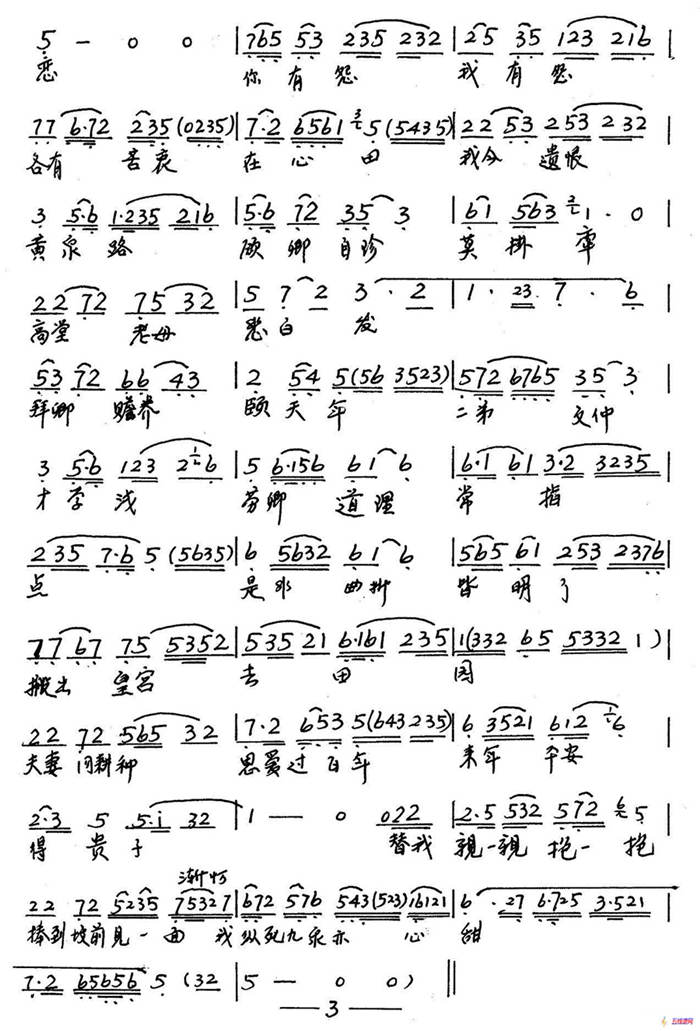 5 — 0 0 | 765 53 235 232 | 25 35 123 216 |
恋 你有怨 我有怨
77 6·72 235 (0235) | 7·2 6561 5 (5435) | 22 53 253 232 |
各有 苦衷 在心田 我今 遗恨
3 5·6 1·235 216 | 5·6 72 35 3 | 61 563 1 · 0 |
黄泉路 愿卿自珍 莫掛牵
22 72 75 32 | 5 7 2 3 · 2 | 1 · 23 7 · 6 |
高堂 老母 愁白发
53 72 66 43 | 2 54 5 (56 3523) | 572 6765 35 3 |
拜卿 赡养 颐天年 二弟 文仲
3 5·6 123 2 6 | 5 6·156 61 6 | 6·1 61 3·2 3235 |
才学浅 劳卿 道理 常指
235 7·6 5 (5635) | 6 5632 61 6 | 565 61 253 2376 |
点 是非 曲折 皆明了
77 67 75 5352 | 535 21 6·161 235 | 1(332 65 5332 1) |
搬出 皇宫 去田园
22 72 565 32 | 7·2 653 5 (643 235) | 6 3521 612 6 |
夫妻 同耕种 恩爱过百年 来年 平安
2·3 5 5·i 32 | 1 — 0 022 | 2·5 532 572 5 |
得贵子 替我 親一親 抱一抱
渐慢
22 72 5235 75327 | 672 576 543(523)16121 | 6 · 27 6·725 3·521 |
捧到坟前見一面 我纵死九泉亦心甜
7·2 65656 5 (32 | 5 — 0 0) ‖
— 3 —